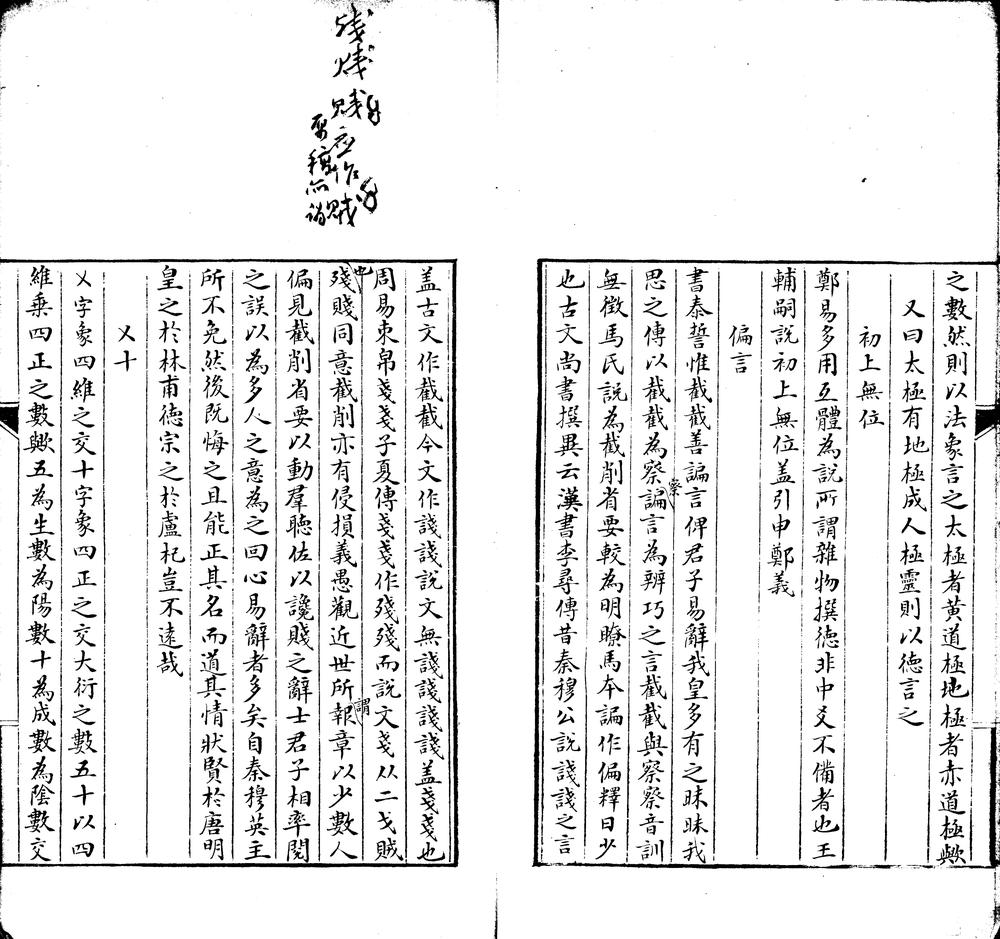 之數然則以法象言之太極者黄道極地極者赤道極歟
又曰太極有地極成人極靈則以德言之
初上無位
鄭易多用互體為說所謂雜物撰德非中爻不備者也王
輔嗣說初上無位盖引申鄭義
偏言
書泰誓惟截截善諞言俾君子易辭我皇多有之昧昧我
思之傳以截截為察察諞言為辨巧之言截截與察察音訓
無徵馬氏說為截削省要較為明瞭馬本諞作偏釋曰少
也古文尚書撰異云漢書李尋傳昔秦穆公說諓諓之言
盖古文作截截今文作諓諓說文無諓諓諓諓盖戔戔也
周易束帛戔戔子夏傳戔戔作殘殘而說文戔从二戈賊也
殘賤同意截削亦有侵損義愚觀近世所謂報章以少數人
偏見截削省要以動羣聽佐以讒賤之辭士君子相率閱
之誤以為多人之意為之回心易辭者多矣自秦穆英主
所不免然後既悔之且能正其名而道其情狀賢於唐明
皇之於林甫德宗之於盧杞豈不遠哉
㐅十
㐅字象四維之交十字象四正之交大衍之數五十以四
維乗四正之數歟五為生數為陽數十為成數為陰數交
残
賤应作賊